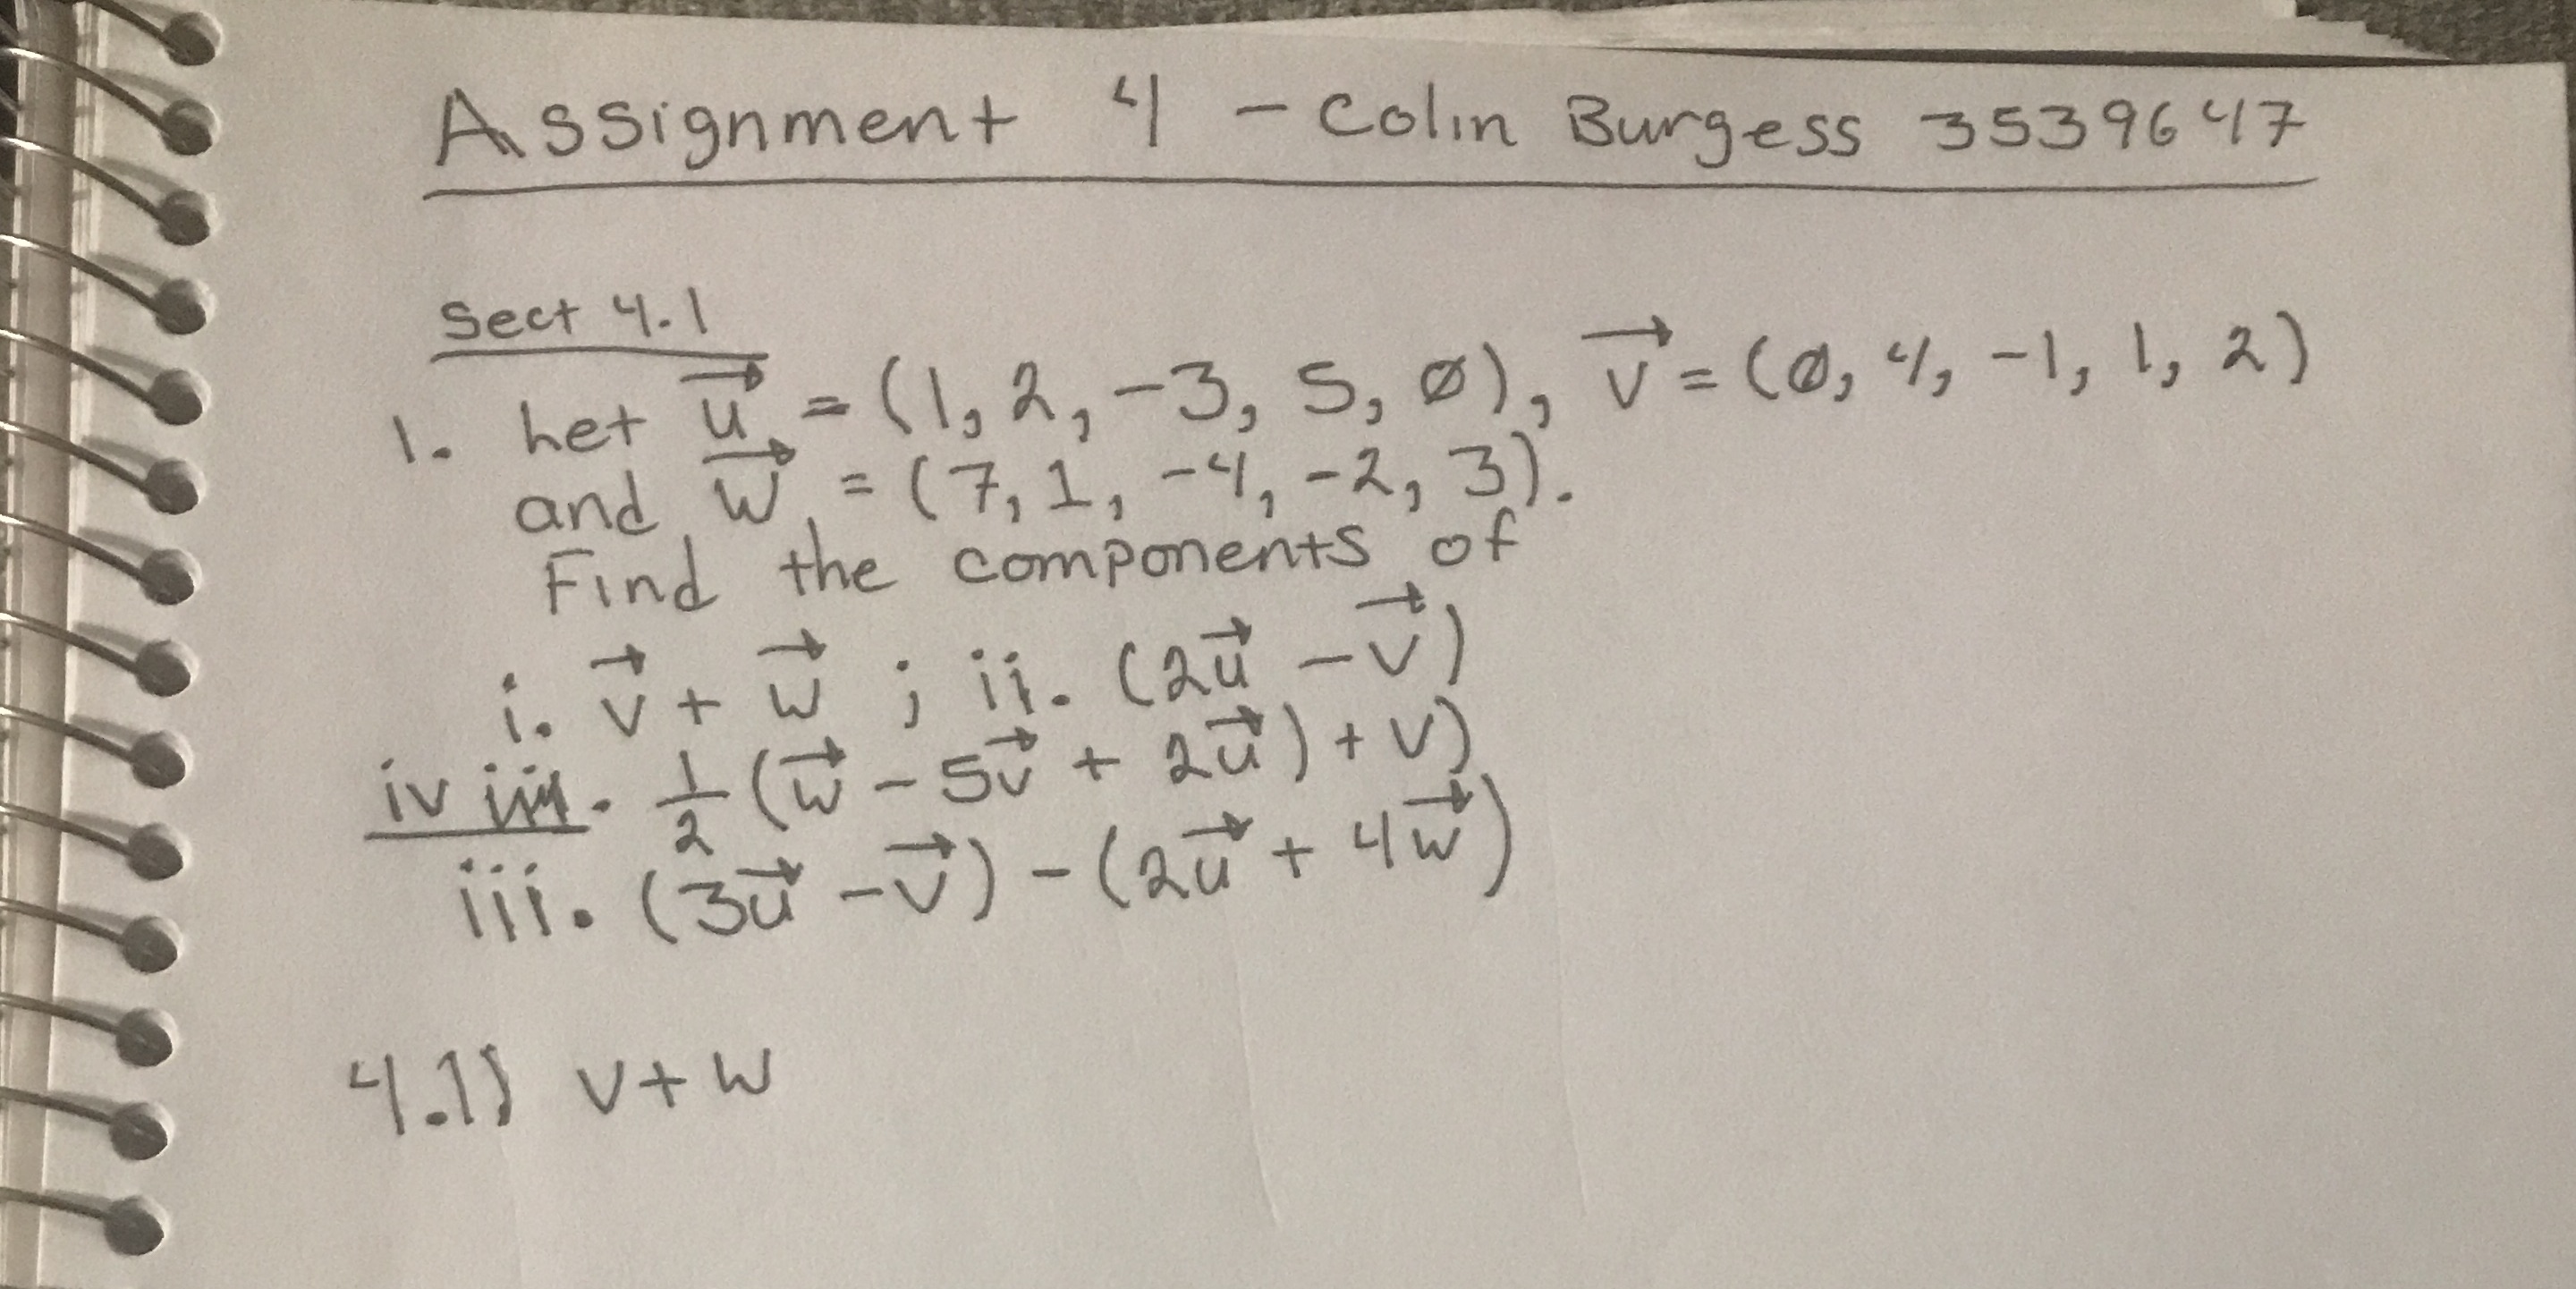 Assignment 4 - Colin Burgess 3539647
Sect 4.1
1. Let u⃗ = (1, 2, -3, 5, 0), v⃗ = (0, 4, -1, 1, 2)
and w⃗ = (7, 1, -4, -2, 3).
Find the components of
i. v⃗ + w⃗ ; ii. (2u⃗ - v⃗)
iv. 1/2 (w⃗ - 5v⃗ + 2u⃗) + v)
iii. (3u⃗ - v⃗) - (2u⃗ + 4w⃗)
4.1) v + w